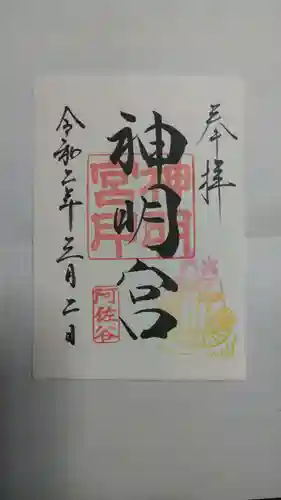 奉拝
神明宮
神明
宮印
阿佐谷
令和二年三月二日